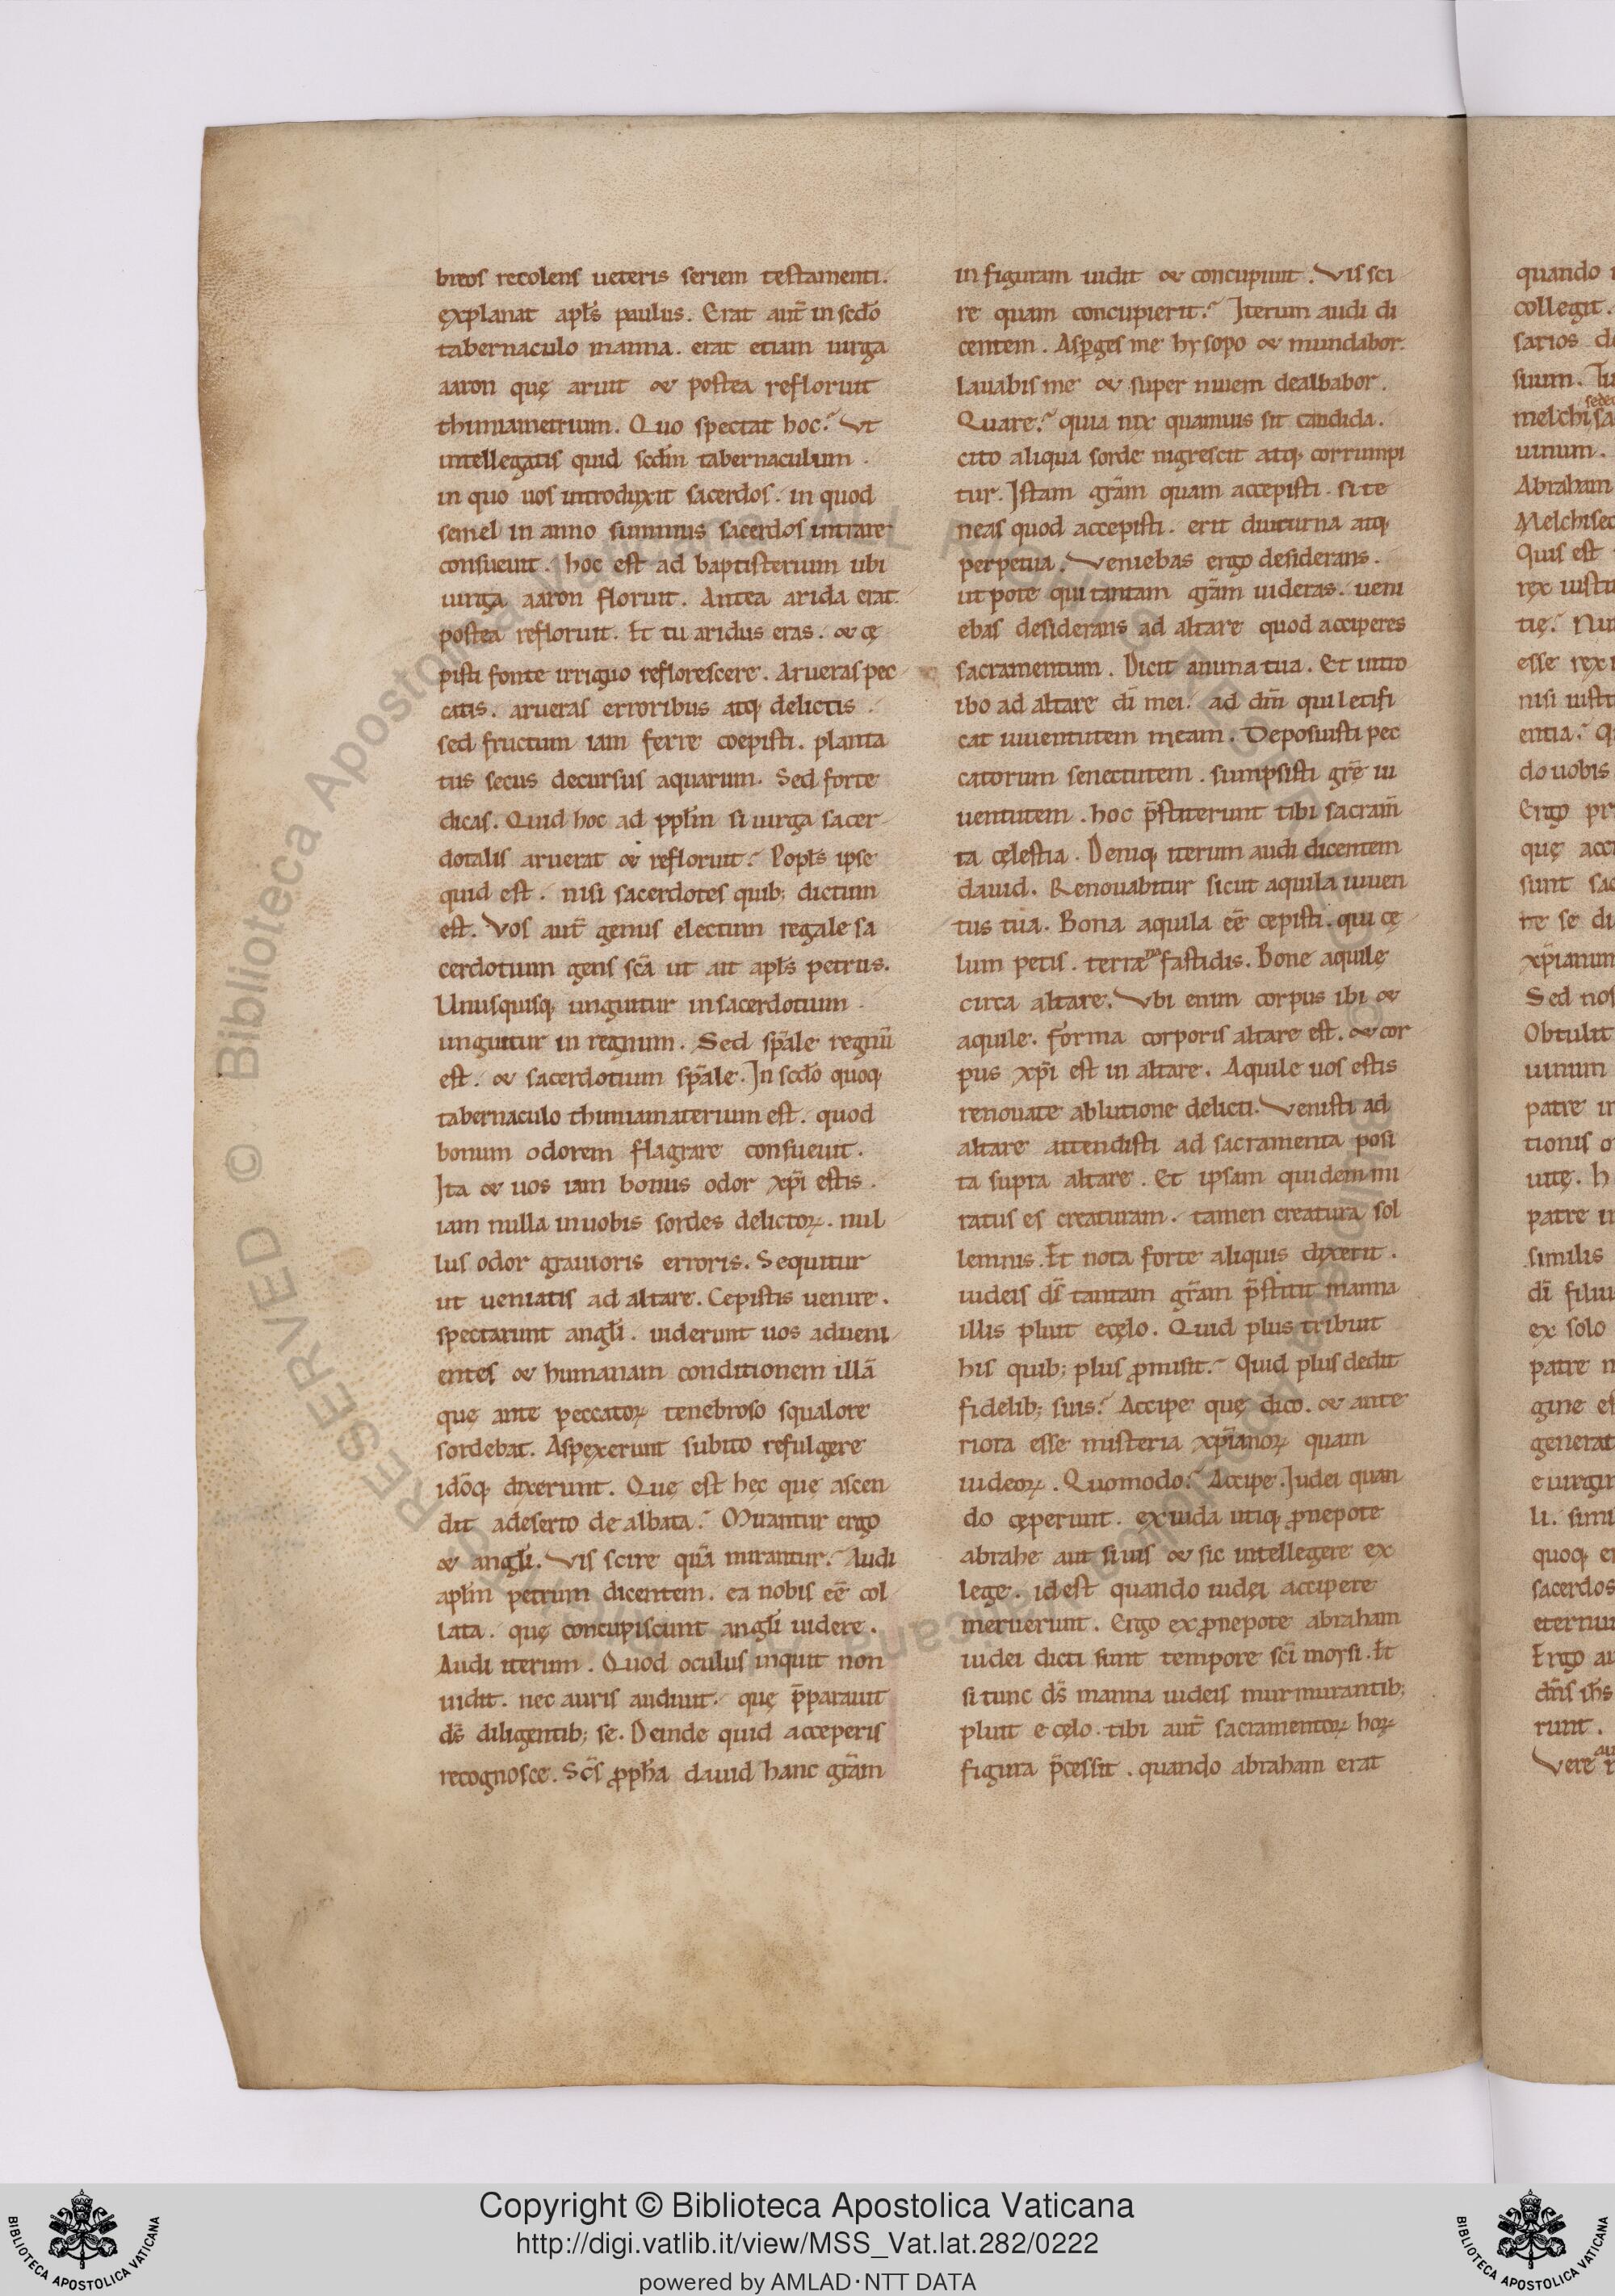 breos recolens ueteris seriem testamenti.
explanat apl̄s paulus. Erat aut̄ in scd̄o
tabernaculo manna. erat etiam uirga
aaron quę aruit & postea refloruit
thimiamatrium. Quo spectat hoc? Vt
intellegatis quid scd̄m tabernaculum.
in quo uos introduxit sacerdos. in quod
semel in anno summus sacerdos intrare
consueuit. hoc est ad baptisterium ubi
uirga aaron floruit. Antea arida erat
postea refloruit. Et tu aridus eras. & cę
pisti fonte irriguo reflorescere. Arueras pec
catis. arueras erroribus atq; delictis.
sed fructum iam ferre coepisti. planta
tus secus decursus aquarum. Sed forte
dicas. Quid hoc ad ppl̄m si uirga sacer
dotalis aruerat & refloruit? Popl̄s ipse
quid est. nisi sacerdotes quib; dictum
est. Vos aut̄ genus electum regale sa
cerdotium gens sc̄a ut ait apl̄s petrus.
Unusquisq; unguitur in sacerdotium.
unguitur in regnum. Sed sp̄ale regnū
est. & sacerdotium sp̄ale. In scd̄o quoq;
tabernaculo thimiamaterium est. quod
bonum odorem flagrare consueuit.
Ita & uos iam bonus odor xp̄i estis.
iam nulla in uobis sordes delictoꝝ. nul
lus odor grauioris erroris. Sequitur
ut ueniatis ad altare. Cepistis uenire.
spectarunt angl̄i. uiderunt uos adueni
entes & humanam conditionem illā
quę ante peccatoꝝ tenebroso squalore
sordebat. Aspexerunt subito refulgere
idōq; dixerunt. Quę est hęc quę ascen
dit a deserto de albata? Mirantur ergo
& angl̄i. Vis scire quā mirantur? Audi
apl̄m petrum dicentem. ea nobis ee̅ col
lata. quę concupiscunt angl̄i uidere.
Audi iterum. Quod oculus inquit non
uidit. nec auris audiuit. quę p̄parauit
ds̄ diligentib; se. Deinde quid acceperis
recognosce. Sc̄s ꝓph̄a dauid hanc grām
in figuram uidit & concupiuit. Vis sci
re quam concupierit? Iterum audi di
centem. Asꝑges me hysopo & mundabor.
lauabis me & super niuem dealbabor.
Quare? quia nix quamuis sit candida.
cito aliqua sorde nigrescit atq; corrumpi
tur. Istam grām quam accepisti. si te
neas quod accepisti. erit diuturna atq;
perpetua. Veniebas ergo desiderans.
ut pote qui tantam grām uideras. ueni
ebas desiderans ad altare quod acciperes
sacramentum. Dicit anima tua. Et intro
ibo ad altare dī mei. ad dm̄ qui letifi
cat iuuentutem meam. Deposuisti pec
catorum senectutem. sumpsisti gr̄e iu
uentutem. hoc p̄stiterunt tibi sacram̄
ta cęlestia. Deniq; iterum audi dicentem
dauid. Renouabitur sicut aquila iuuen
tus tua. Bona aquila ee̅ cepisti. qui cę
lum petis. terrana fastidis. Bone aquilę
circa altare. Vbi enim corpus ibi &
aquile. forma corporis altare est. & cor
pus xp̄i est in altare. Aquile uos estis
renouate ablutione delicti. Venisti ad
altare attendisti ad sacramenta posi
ta supra altare. Et ipsam quidem mi
ratus es creaturam. tamen creatura sol
lemnis. Et nota forte aliquis dixerit.
iudeis ds̄ tantam grām p̄stitit manna
illis pluit ecęlo. Quid plus tribuit
his quib; plus ꝓmisit. Quid plus dedit
fidelib; suis? Accipe quę dico. & ante
riora esse misteria xp̄ianoꝝ quam
iudeoꝝ. Quomodo? Accipe. Iudei quan
do cęperunt. ex iuda utiq; ꝓnepote
abrahe aut si uis & sic intellegere ex
lege. id est quando iudęi accipere
meruerunt. Ergo ex ꝓnepote abraham
iudei dicti sunt tempore sc̄i moysi. Et
si tunc ds̄ manna iudeis murmurantib;
pluit e cęlo. tibi aut̄ sacramentoꝝ hoꝝ
figura p̄cessit. quando abraham erat
quando
collegit.
satios
suum.
melchi
uinum.
Abraham
Melchisec
Quis est
rex iusti
tię?
esse rex
nisi iusti
entia?
do uobis
Ergo pr
quę acc
sunt sac
re se di
xp̄ianum
Sed nos
Obtulit
uinum
patre
tionis
uitę. h
patre
similis
dī filiu
ex solo
patre
gine
generat
e uirgi
li. simi
quoq;
sacerdos
eternu
Ergo au
dn̄s ih̄s
runt.
Vere
RESERVED © Biblioteca Apostolica Vaticana ALL RIGHTS RESERVED ©
Copyright © Biblioteca Apostolica Vaticana
http://digi.vatlib.it/view/MSS_Vat.lat.282/0222
powered by AMLAD·NTT DATA
BIBLIOTECA APOSTOLICA VATICANA
BIBLIOTECA APOSTOLICA VATICANA